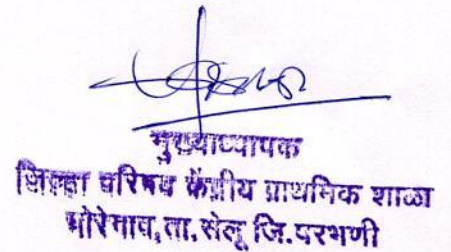 मुख्याध्यापक
जिल्हा परिषद केंद्रीय प्राथमिक शाळा
मोरेगाव, ता. सेलू जि. परभणी